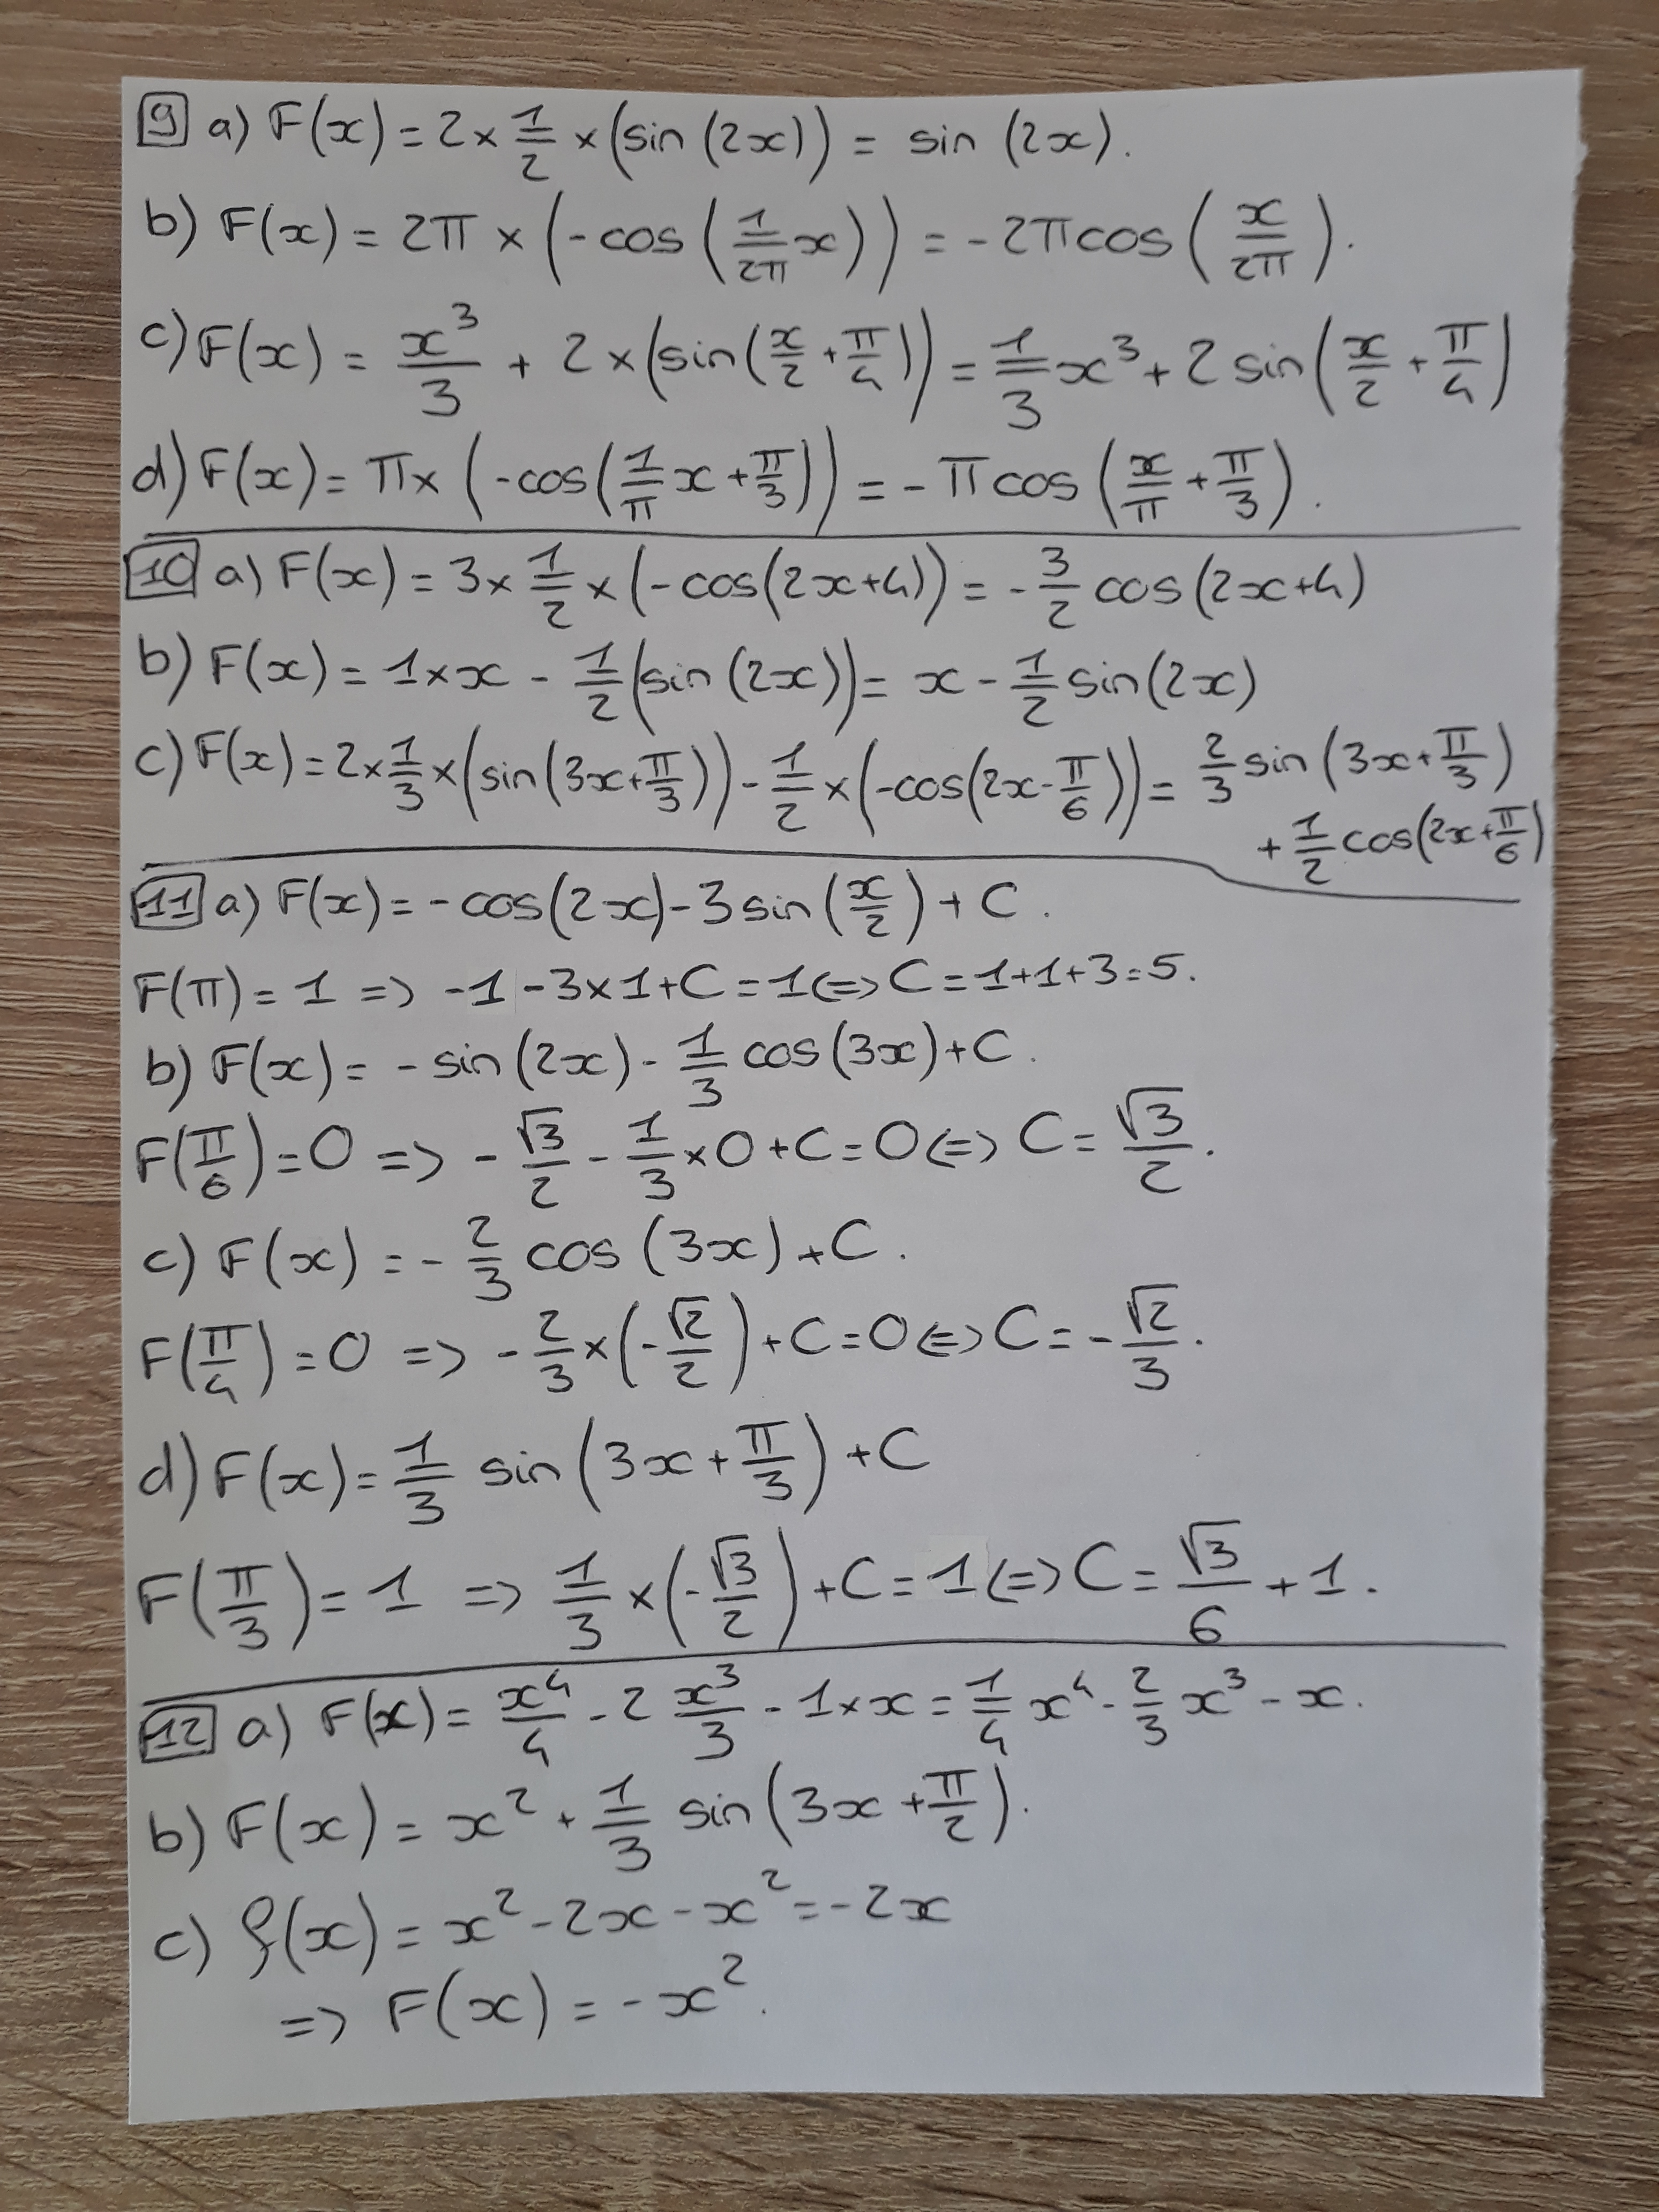 9 a) F(x) = 2 × 1/2 × (sin (2x)) = sin (2x).
b) F(x) = 2π × (-cos (1/2π x)) = -2π cos (x/2π).
c) F(x) = x³/3 + 2 × (sin (x/2 + π/4)) = 1/3 x³ + 2 sin (x/2 + π/4)
d) F(x) = π × (-cos (1/π x + π/3)) = -π cos (x/π + π/3).
10 a) F(x) = 3 × 1/2 × (-cos(2x+4)) = -3/2 cos (2x+4)
b) F(x) = 1 × x - 1/2 (sin (2x)) = x - 1/2 sin (2x)
c) F(x) = 2 × 1/3 × (sin (3x + π/3)) - 1/2 × (-cos(2x - π/6)) = 2/3 sin (3x + π/3)
+ 1/2 cos (2x + π/6)
11 a) F(x) = -cos(2x) - 3 sin (x/2) + C.
F(π) = 1 => -1 - 3×1 + C = 1 <=> C = 1+1+3 = 5.
b) F(x) = -sin (2x) - 1/3 cos (3x) + C.
F(π/6) = 0 => -√3/2 - 1/3 × 0 + C = 0 <=> C = √3/2.
c) F(x) = -2/3 cos (3x) + C.
F(π/4) = 0 => -2/3 × (-√2/2) + C = 0 <=> C = -√2/3.
d) F(x) = 1/3 sin (3x + π/3) + C
F(π/3) = 1 => 1/3 × (-√3/2) + C = 1 <=> C = √3/6 + 1.
12 a) F(x) = x⁴/4 - 2 x³/3 - 1 × x = 1/4 x⁴ - 2/3 x³ - x.
b) F(x) = x² + 1/3 sin (3x + π/2).
c) f(x) = x² - 2x - x² = -2x
=> F(x) = -x².